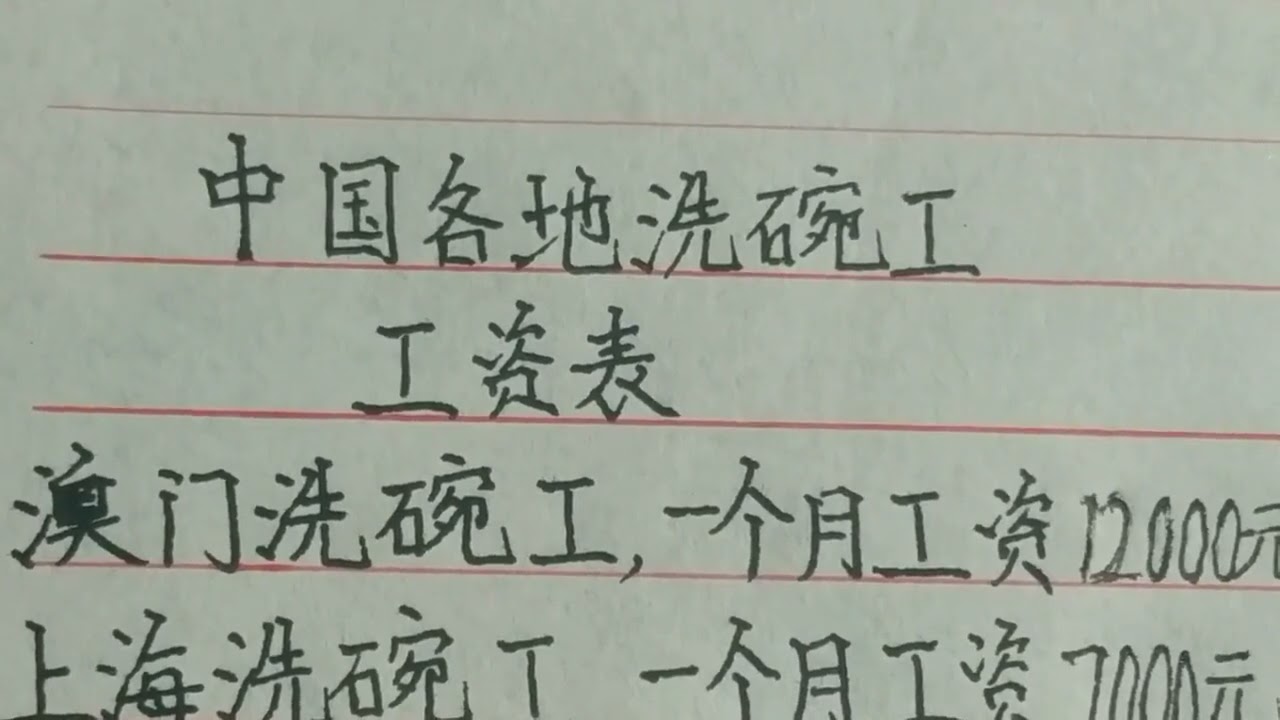 中国各地洗碗工
工资表
澳门洗碗工,一个月工资12000元
上海洗碗工 一个月工资7000元